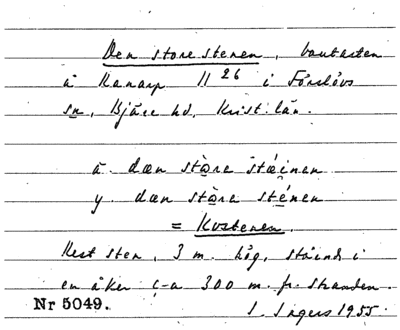 Den store stenen, bautasten
å Ranarp 11²⁶ i Förslövs
sn, Bjäre hd, Krist. län.
ä. dæn stòra stǽinen
y. dæn stòra sténen
= Kostenen.
Rest sten, 3 m. hög, ståndt i
en åker c-a 300 m. fr. stranden.
Nr 5049.
I. Ingers 1955.